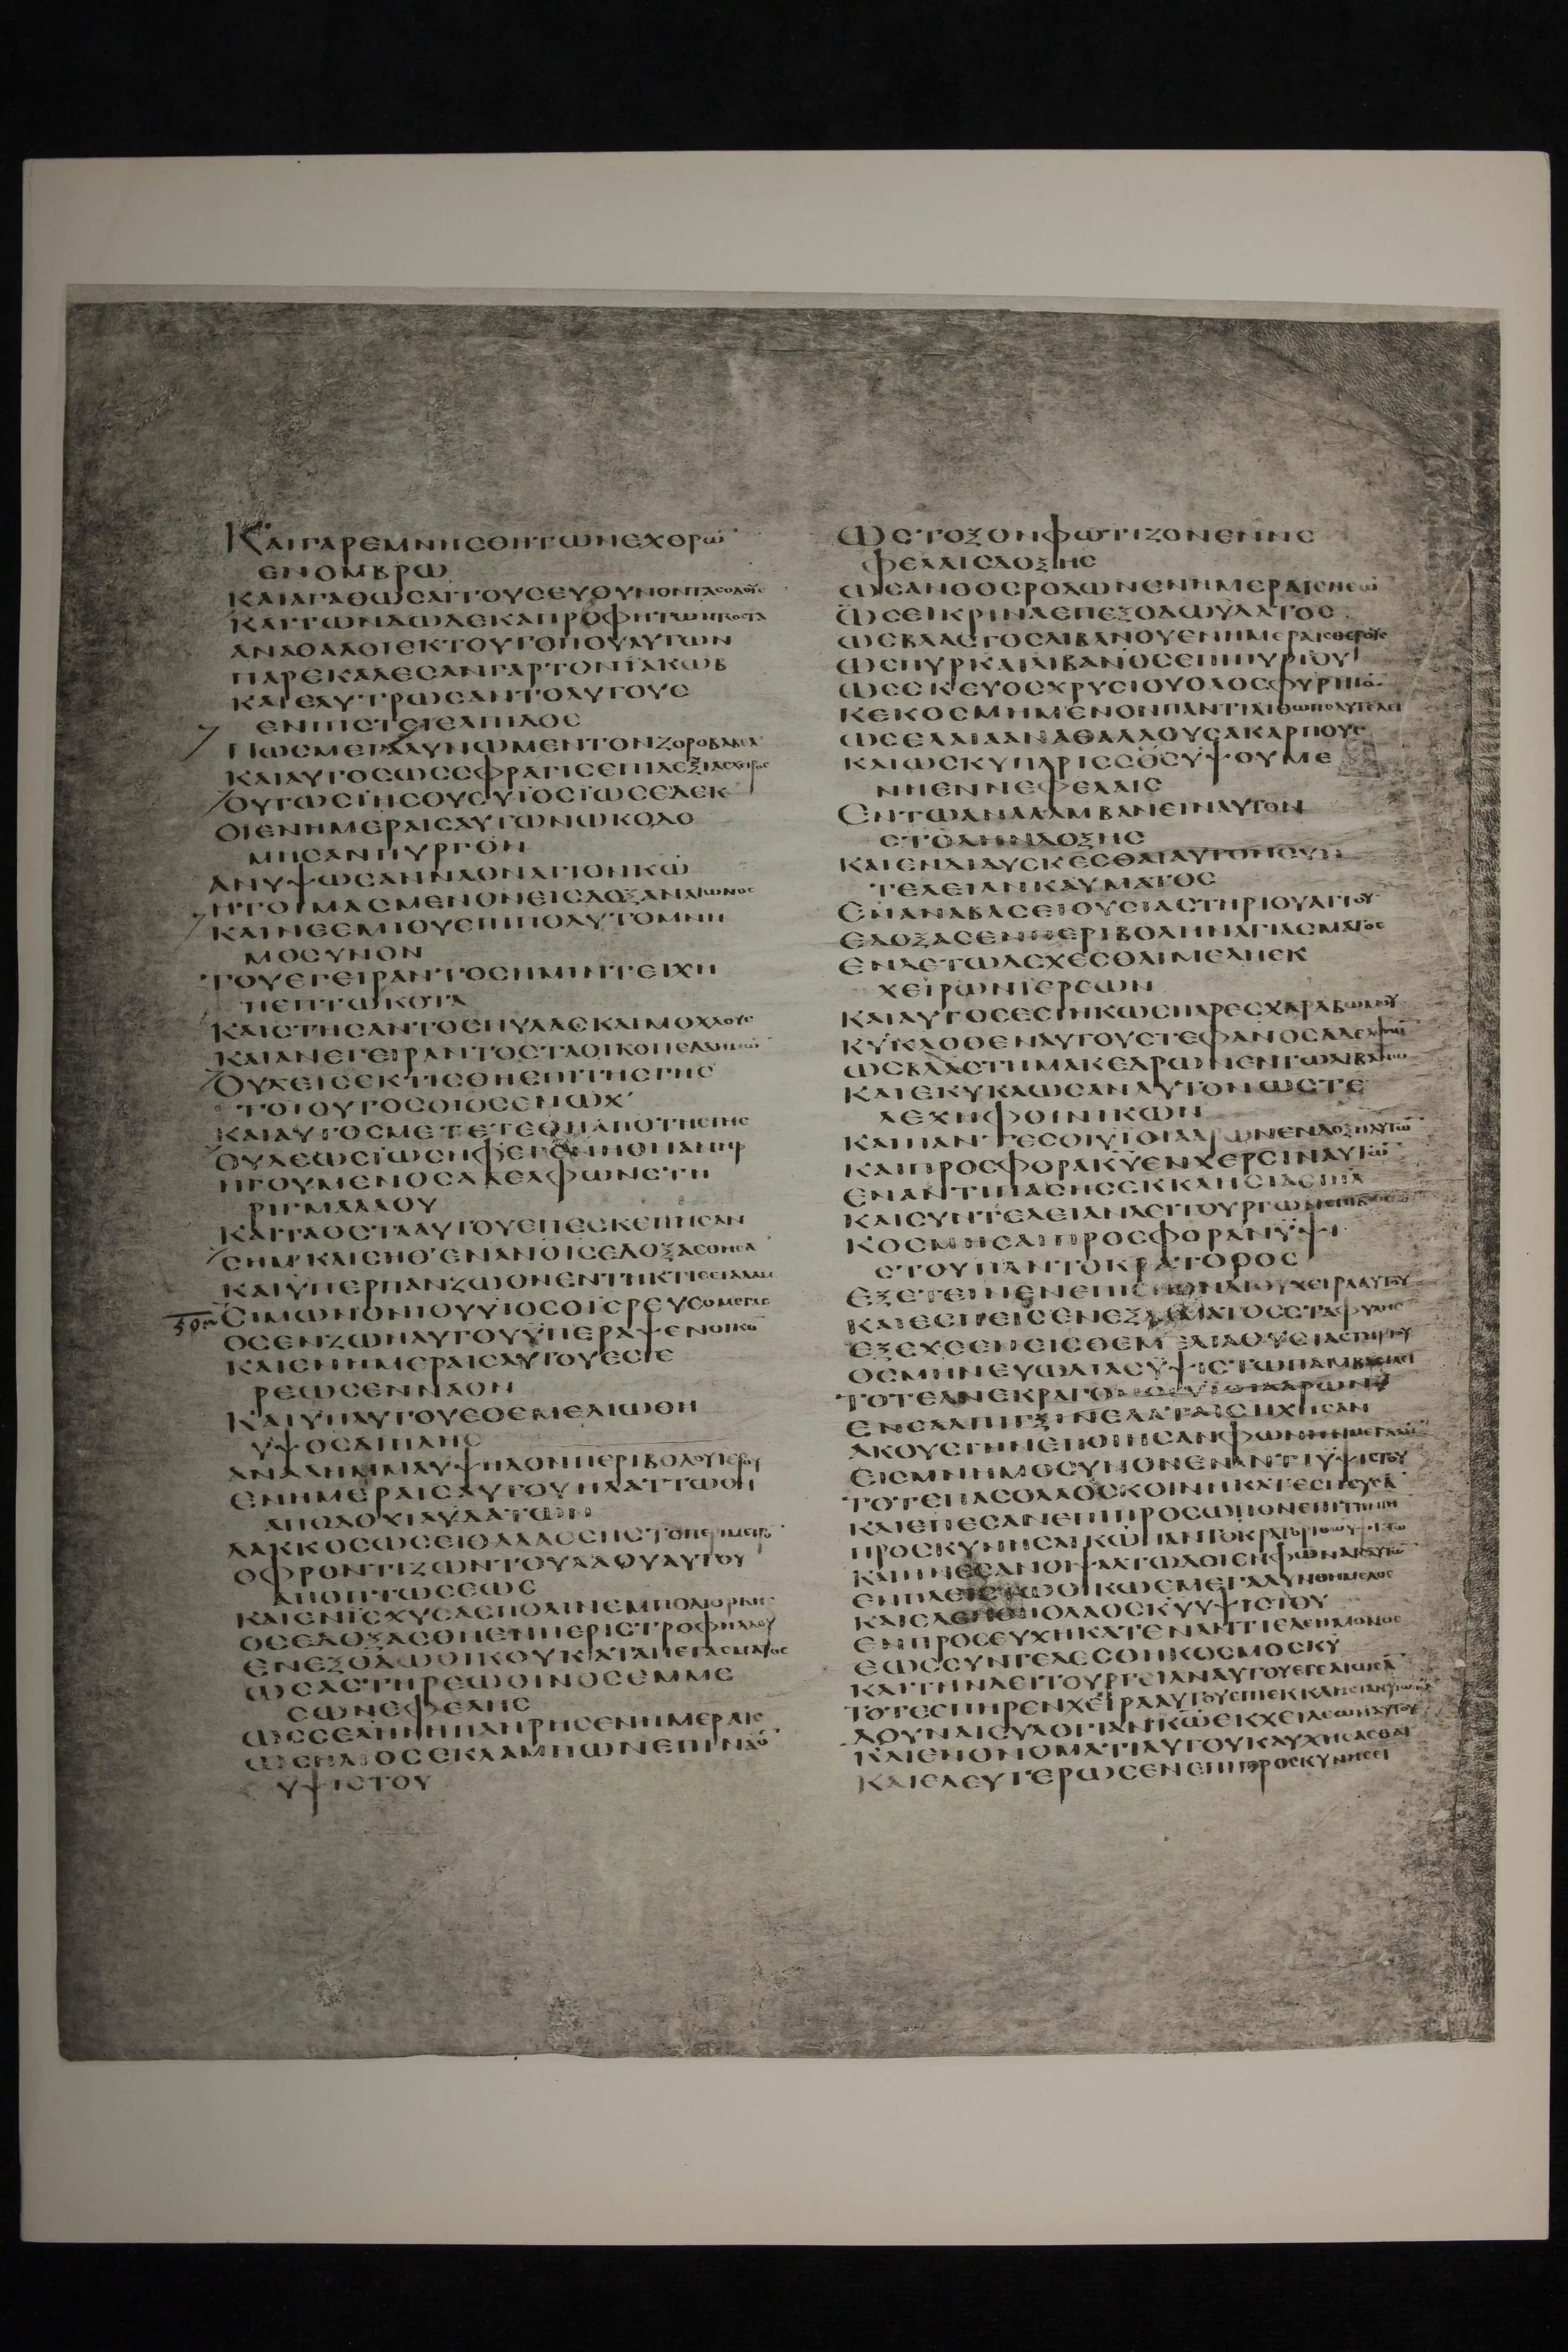 ΚΑΙΓΑΡΕΜΝΗΣΘΗΤΩΝΕΧΘΡΩ
ΕΝΟΜΒΡΩ
ΚΑΙΑΓΑΘΩΣΑΙΤΟΥΣΕΥΘΥΝΟΝΤΑΣΟΔΟΥΣ
ΚΑΙΤΩΝΔΩΔΕΚΑΠΡΟΦΗΤΩΝΤΟΣΤΑ
ΑΝΑΘΑΛΟΙΕΚΤΟΥΤΟΠΟΥΑΥΤΩΝ
ΠΑΡΕΚΑΛΕΣΑΝΓΑΡΤΟΝΪΑΚΩΒ
ΚΑΙΕΛΥΤΡΩΣΑΝΤΟΑΥΤΟΥΣ
ΕΝΠΙΣΤΕΙΕΛΠΙΔΟΣ
ΠΩΣΜΕΓΑΛΥΝΩΜΕΝΤΟΝΖΟΡΟΒΑΒΕΛ
ΚΑΙΑΥΤΟΣΩΣΣΦΡΑΓΙΣΕΠΙΔΕΞΙΑΣΧΙΡΟΣ
ΟΥΤΩΣΪΗΣΟΥΣΥΪΟΣΪΩΣΕΔΕΚ
ΟΙΕΝΗΜΕΡΑΙΣΑΥΤΩΝΩΚΟΔΟ
ΜΗΣΑΝΠΥΡΓΟΝ
ΑΝΥΨΩΣΑΝΝΑΟΝΑΓΙΟΝΚΩ
ΗΤΟΙΜΑΣΜΕΝΟΝΕΙΣΔΟΞΑΝΑΙΩΝΟΣ
ΚΑΙΝΕΕΜΙΟΥΕΠΙΠΟΛΥΤΟΜΝΗ
ΜΟΣΥΝΟΝ
ΤΟΥΕΓΕΙΡΑΝΤΟΣΗΜΙΝΤΕΙΧΗ
ΠΕΠΤΩΚΟΤΑ
ΚΑΙΣΤΗΣΑΝΤΟΣΠΥΛΑΣΚΑΙΜΟΧΛΟΥΣ
ΚΑΙΑΝΕΓΕΙΡΑΝΤΟΣΤΑΟΙΚΟΠΕΔΑΗΜΩ
ΟΥΔΕΙΣΕΚΤΙΣΘΗΕΠΙΤΗΣΓΗΣ
ΤΟΙΟΥΤΟΣΟΙΟΣΕΝΩΧ
ΚΑΙΑΥΤΟΣΜΕΤΕΤΕΘΗΑΠΟΤΗΣΓΗΣ
ΟΥΔΕΩΣΪΩΣΗΦΕΓΕΝΝΗΘΗΑΝΗΡ
ΗΓΟΥΜΕΝΟΣΑΔΕΛΦΩΝΣΤΗ
ΡΙΓΜΑΛΑΟΥ
ΚΑΙΤΑΟΣΤΑΑΥΤΟΥΕΠΕΣΚΕΠΗΣΑΝ
ΣΗΜΚΑΙΣΗΘΕΝΑΝΟΙΣΕΔΟΞΑΣΘΗΣΑ
ΚΑΙΫΠΕΡΠΑΝΖΩΟΝΕΝΤΗΚΤΙΣΕΙΑΔΑΜ
ΣΙΜΩΝΟΝΙΟΥΥΪΟΣΟΪΕΡΕΥΣΟΜΕΓΑΣ
ΟΣΕΝΖΩΗΑΥΤΟΥΫΠΕΡΑΨΕΝΟΙΚΟ
ΚΑΙΕΝΗΜΕΡΑΙΣΑΥΤΟΥΕΣΤΕ
ΡΕΩΣΕΝΝΑΟΝ
ΚΑΙΫΠΑΥΤΟΥΕΘΕΜΕΛΙΩΘΗ
ΥΨΟΣΔΙΠΛΗΣ
ΑΝΑΛΗΜΜΑΥΨΗΛΟΝΠΕΡΙΒΟΛΟΥΪΕΡΟΥ
ΕΝΗΜΕΡΑΙΣΑΥΤΟΥΗΛΑΤΤΩΘΗ
ΑΠΟΔΟΧΙΑΫΔΑΤΩΝ
ΛΑΚΚΟΣΩΣΕΙΘΑΛΑΣΣΗΣΤΟΠΕΡΙΜΕΤΡΟ
ΟΦΡΟΝΤΙΖΩΝΤΟΥΛΑΟΥΑΥΤΟΥ
ΑΠΟΠΤΩΣΕΩΣ
ΚΑΙΕΝΙΣΧΥΣΑΣΠΟΛΙΝΕΜΠΟΛΙΟΡΚΗΣ
ΩΣΕΔΟΞΑΣΘΗΕΝΠΕΡΙΣΤΡΟΦΗΛΑΟΥ
ΕΝΕΞΟΔΩΟΙΚΟΥΚΑΤΑΠΕΤΑΣΜΑΤΟΣ
ΩΣΑΣΤΗΡΕΩΘΙΝΟΣΕΜΜΕ
ΣΩΝΕΦΕΛΗΣ
ΩΣΣΕΛΗΝΗΠΛΗΡΗΣΕΝΗΜΕΡΑΙΣ
ΩΣΗΛΙΟΣΕΚΛΑΜΠΩΝΕΠΙΝΑΟ
ΥΨΙΣΤΟΥ
ΩΣΤΟΞΟΝΦΩΤΙΖΟΝΕΝΝΕ
ΦΕΛΑΙΣΔΟΞΗΣ
ΩΣΑΝΘΟΣΡΟΔΩΝΕΝΗΜΕΡΑΙΣΝΕΩ
ΩΣΕΙΚΡΙΝΑΕΠΕΞΟΔΩΫΔΑΤΟΣ
ΩΣΒΛΑΣΤΟΣΛΙΒΑΝΟΥΕΝΗΜΕΡΑΙΣΘΕΡΟΥΣ
ΩΣΠΥΡΚΑΙΛΙΒΑΝΟΣΕΠΙΠΥΡΙΟΥ
ΩΣΣΚΕΥΟΣΧΡΥΣΙΟΥΟΛΟΣΦΥΡΗΤΟ
ΚΕΚΟΣΜΗΜΕΝΟΝΠΑΝΤΙΛΙΘΩΠΟΛΥΤΕΛΕΙ
ΩΣΕΛΑΙΑΑΝΑΘΑΛΛΟΥΣΑΚΑΡΠΟΥΣ
ΚΑΙΩΣΚΥΠΑΡΙΣΣΟΣΥΨΟΥΜΕ
ΝΗΕΝΝΕΦΕΛΑΙΣ
ΕΝΤΩΑΝΑΛΑΜΒΑΝΕΙΝΑΥΤΟΝ
ΣΤΟΛΗΝΔΟΞΗΣ
ΚΑΙΕΝΔΙΔΥΣΚΕΣΘΑΙΑΥΤΟΝΣΥΝ
ΤΕΛΕΙΑΝΚΑΥΜΑΤΟΣ
ΕΝΑΝΑΒΑΣΕΙΘΥΣΙΑΣΤΗΡΙΟΥΑΓΙΟΥ
ΕΔΟΞΑΣΕΝΠΕΡΙΒΟΛΗΝΑΓΙΑΣΜΑΤΟΣ
ΕΝΔΕΤΩΔΕΧΕΣΘΑΙΜΕΛΗΕΚ
ΧΕΙΡΩΝΙΕΡΕΩΝ
ΚΑΙΑΥΤΟΣΕΣΤΗΚΩΣΠΑΡΕΣΧΑΡΑΒΩΜΟΥ
ΚΥΚΛΟΘΕΝΑΥΤΟΥΣΤΕΦΑΝΟΣΑΔΕΛΦΩ
ΩΣΒΛΑΣΤΗΜΑΚΕΔΡΩΝΕΝΤΩΛΙΒΑΝΩ
ΚΑΙΕΚΥΚΛΩΣΑΝΑΥΤΟΝΩΣΤΕ
ΛΕΧΗΦΟΙΝΙΚΩΝ
ΚΑΙΠΑΝΤΕΣΟΙΥΪΟΙΑΑΡΩΝΕΝΔΟΞΗΑΥΤΩ
ΚΑΙΠΡΟΣΦΟΡΑΚΥΕΝΧΕΡΣΙΝΑΥΤΩ
ΕΝΑΝΤΙΠΑΣΗΣΕΚΚΛΗΣΙΑΣΙΗΛ
ΚΑΙΣΥΝΤΕΛΕΙΑΝΛΕΙΤΟΥΡΓΩΝΕΠΙΒΩΜΩ
ΚΟΣΜΗΣΑΙΠΡΟΣΦΟΡΑΝΥΨΙ
ΣΤΟΥΠΑΝΤΟΚΡΑΤΟΡΟΣ
ΕΞΕΤΕΙΝΕΝΕΠΙΣΠΟΝΔΙΟΥΧΕΙΡΑΑΥΤΟΥ
ΚΑΙΕΣΠΕΙΣΕΝΕΞΑΙΜΑΤΟΣΣΤΑΦΥΛΗΣ
ΕΞΕΧΕΕΝΕΙΣΘΕΜΕΛΙΑΘΥΣΙΑΣΤΗΡΙΟΥ
ΟΣΜΗΝΕΥΩΔΙΑΣΥΨΙΣΤΩΠΑΜΒΑΣΙΛΕΙ
ΤΟΤΕΑΝΕΚΡΑΓΟΝΟΙΥΪΟΙΑΑΡΩΝ
ΕΝΣΑΛΠΙΓΞΙΝΕΛΑΤΑΙΣΗΧΗΣΑΝ
ΑΚΟΥΣΤΗΝΕΠΟΙΗΣΑΝΦΩΝΗΝΜΕΓΑΛΗ
ΕΙΣΜΝΗΜΟΣΥΝΟΝΕΝΑΝΤΙΥΨΙΣΤΟΥ
ΤΟΤΕΠΑΣΟΛΑΟΣΚΟΙΝΗΚΑΤΕΣΠΕΥΣΑ
ΚΑΙΕΠΕΣΑΝΕΠΙΠΡΟΣΩΠΟΝΕΠΙΤΗΓΗ
ΠΡΟΣΚΥΝΗΣΑΙΚΩΠΑΝΤΟΚΡΑΤΟΡΙΘΩΥΨΙΣΤΩ
ΚΑΙΗΝΕΣΑΝΟΙΨΑΛΤΩΔΟΙΕΝΦΩΝΑΙΣΑΥΤΩ
ΕΝΠΛΕΙΣΤΩΟΙΚΩΕΜΕΓΑΛΥΝΘΗΜΕΛΟΣ
ΚΑΙΕΔΕΗΘΗΟΛΑΟΣΚΥΥΨΙΣΤΟΥ
ΕΝΠΡΟΣΕΥΧΗΚΑΤΕΝΑΝΤΙΕΛΕΗΜΟΝΟΣ
ΕΩΣΣΥΝΤΕΛΕΣΘΗΚΟΣΜΟΣΚΥ
ΚΑΙΤΗΝΛΕΙΤΟΥΡΓΕΙΑΝΑΥΤΟΥΕΤΕΛΙΩΣΑ
ΤΟΤΕΕΠΗΡΕΝΧΕΙΡΑΑΥΤΟΥΕΠΙΕΚΚΛΗΣΙΑΝΥΙΩΝ
ΔΟΥΝΑΙΕΥΛΟΓΙΑΝΚΩΕΚΧΕΙΛΕΩΝΑΥΤΟΥ
ΚΑΙΕΝΟΝΟΜΑΤΙΑΥΤΟΥΚΑΥΧΗΣΑΣΘΑΙ
ΚΑΙΕΔΕΥΤΕΡΩΣΕΝΕΠΙΠΡΟΣΚΥΝΗΣΕΙ